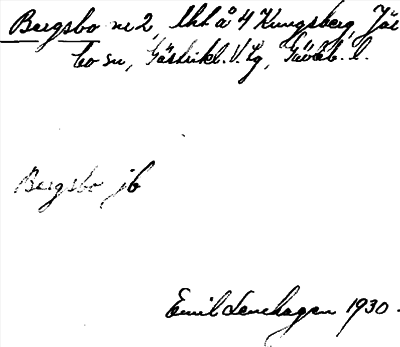 Bergsbo nr 2, lht å 4 Kungsberg, Jär
bo sn, Gästrikl. V. lg, Gävleb. l.
Bergsbo jb
Emil Lenhagen 1930.